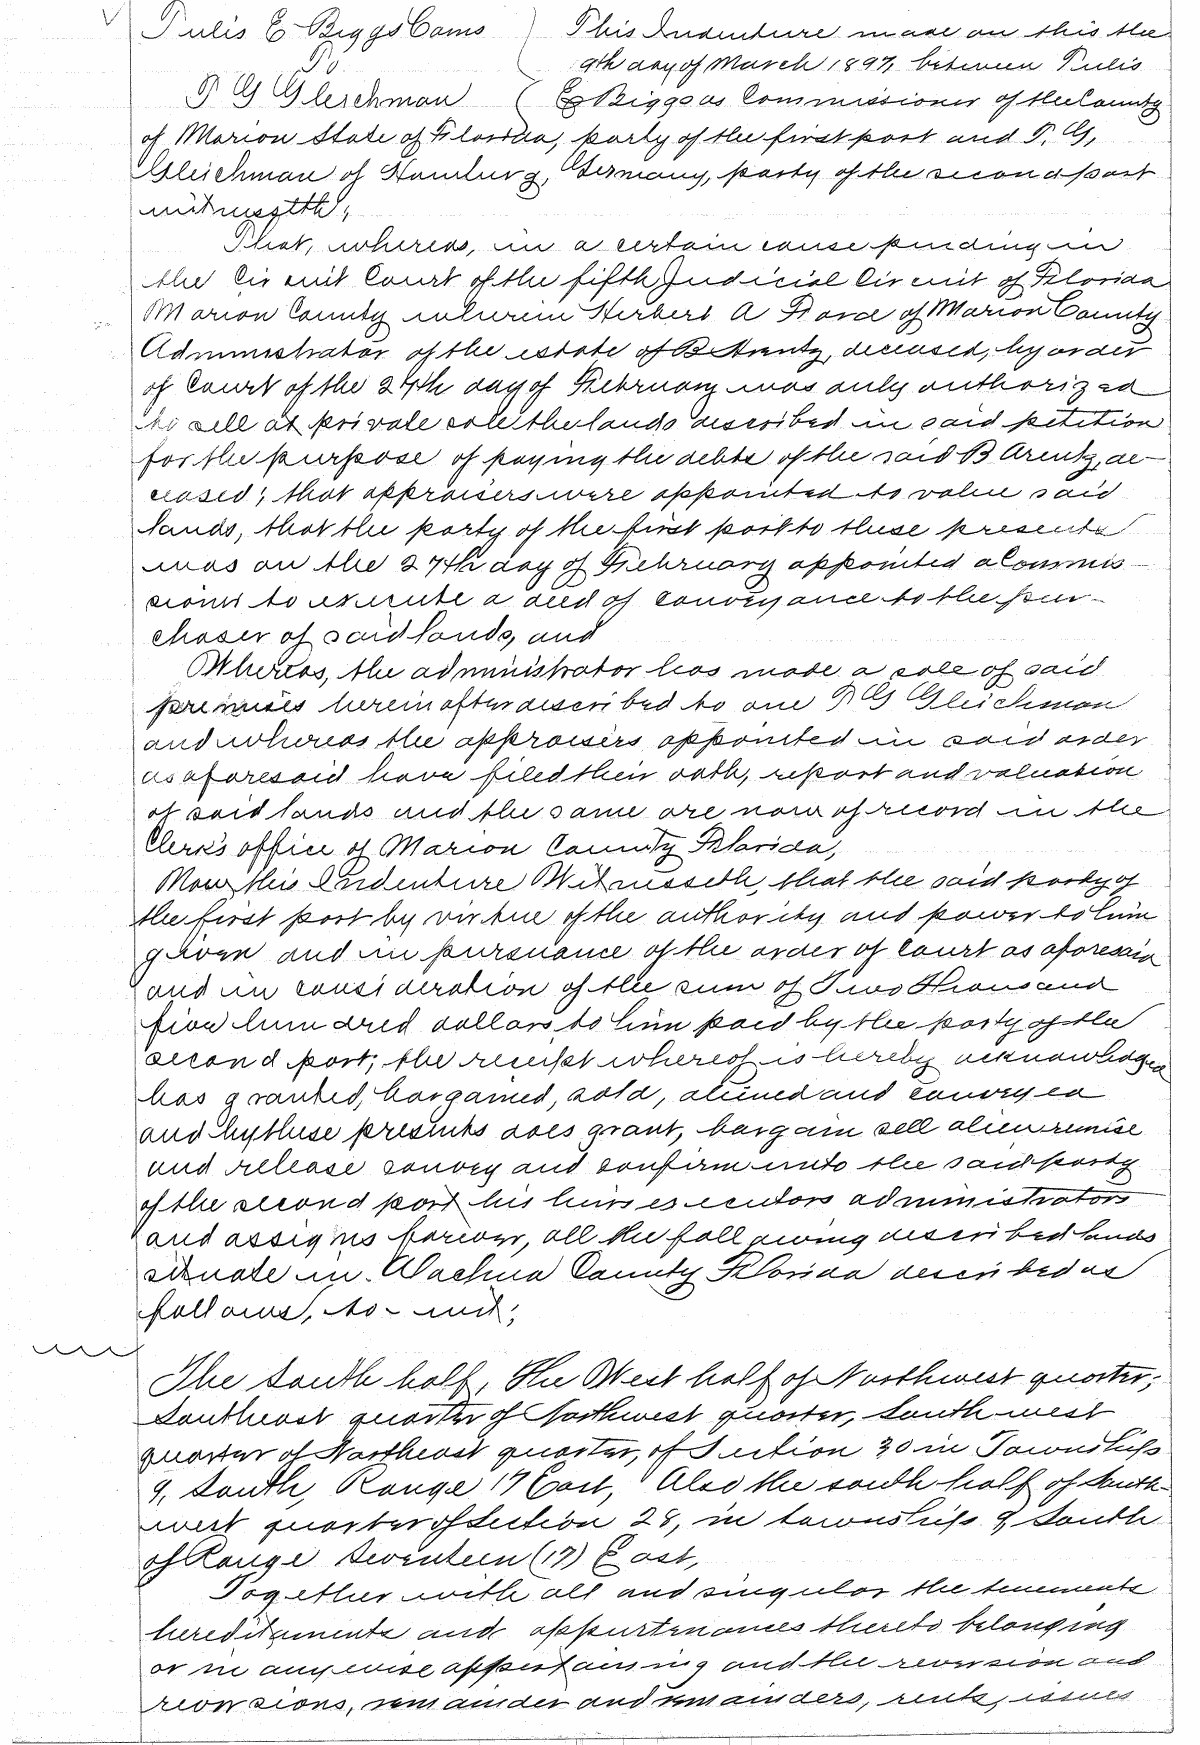 Tulis E Biggs Coms ) This Indenture made on this the
To 9th day of March 1897, between Tulis
P G Gleichman ( E Biggs as Commissioner of the County
of Marion State of Florida, party of the first part and P. G,
Gleichman of Hamburg, Germany, party of the second part
witnesseth;
That, whereas, in a certain cause pending in
the Circuit Court of the fifth Judicial Circuit of Florida
Marion County wherein Herbert A of Marion County
Administrator of the estate of B Arentz, deceased, by order
of Court of the 24th day of February was duly authorized
to sell at private sale the lands described in said petition
for the purpose of paying the debts of the said B Arentz, de-
ceased; that appraisers were appointed to value said
lands, that the party of the first part to these presents
was on the 27th day of February appointed a Commis-
sioner to execute a deed of conveyance to the pur-
chaser of said lands, and
Whereas, the administrator has made a sale of said
premises hereinafter described to one P G Gleichman
and whereas the appraisers appointed in said order
as aforesaid have filed their oath, report and valuation
of said lands and the same are now of record in the
Clerk's office of Marion County Florida,
Now this Indenture Witnesseth, that the said party of
the first part by virtue of the authority and power to him
given and in pursuance of the order of Court as aforesaid
and in consideration of the sum of Two Thousand
five hundred dollars to him paid by the party of the
second part, the receipt whereof is hereby acknowledged
has granted, bargained, sold, aliened and conveyed
and by these presents does grant, bargain sell alien remise
and release convey and confirm unto the said party
of the second part his heirs executors administrators
and assigns forever, all the following described lands
situate in Alachua County Florida described as
follows, to-wit;
The South half, the West half of Northwest quarter;
Southeast quarter of Northwest quarter, South west
quarter of Northeast quarter, of Section 30 in Township
9, South, Range 17 East, Also the south half of South-
west quarter of Section 28, in township 9 South
of Range Seventeen (17) East,
Together with all and singular the tenements
hereditaments and appurtenances thereto belonging
or in anywise appertaining and the reversion and
reversions, remainder and remainders, rents, issues